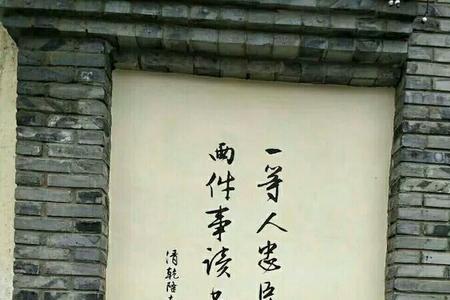 一等人忠臣
两件事读
清乾隆